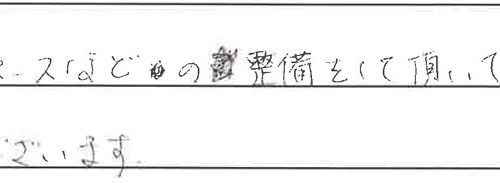 ースなどの整備をして頂いて
ざいます。